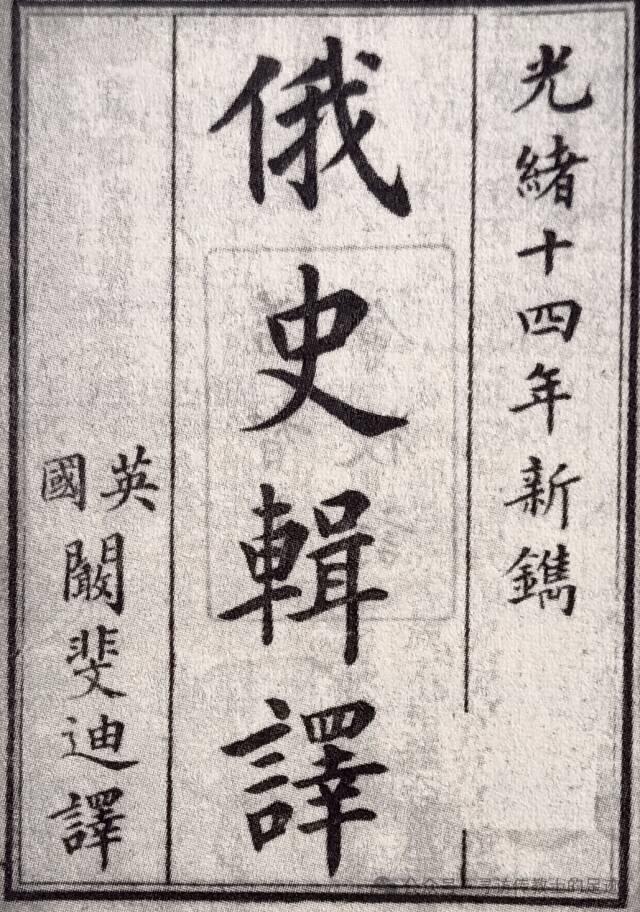 光緒十四年新鐫
俄史輯譯
英國
闞斐迪譯